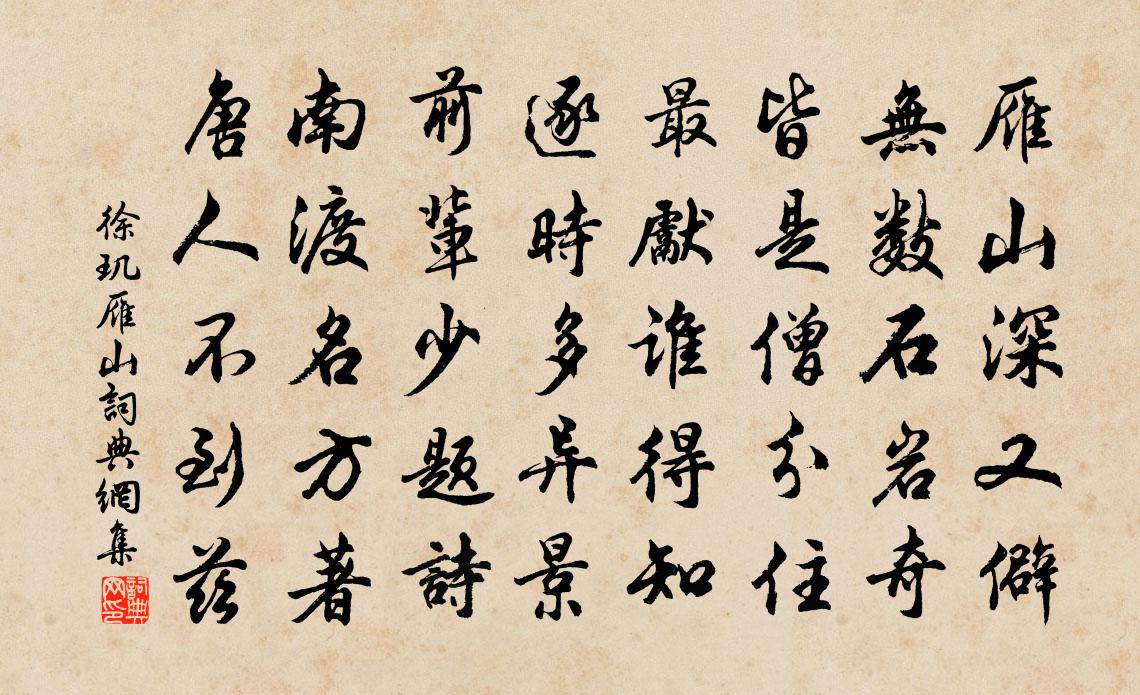 雁山深又僻
無數石岩奇
皆是僧分住
最獻誰得知
逐時多异景
前輩少題詩
南渡名方著
唐人不到茲
徐玑雁山詞典網集
詞典网印